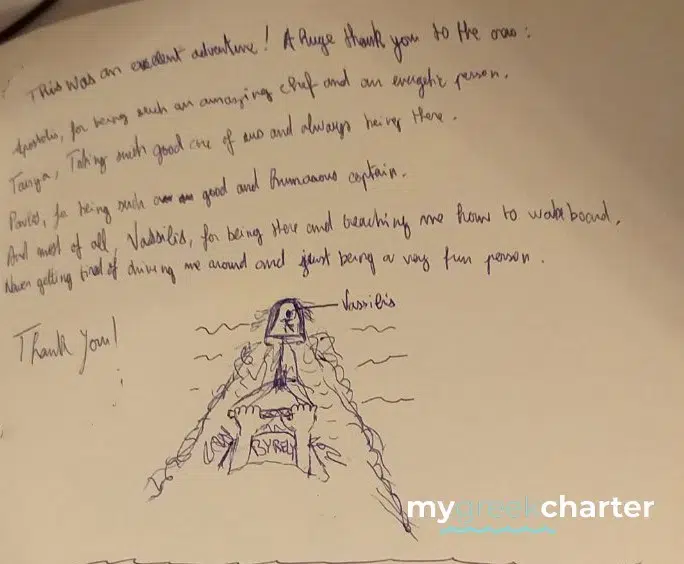 This was an excellent adventure! A huge thank you to the crew:
Apostolis, for being such an amazing chef and an energetic person.
Tanya, Taking such good care of us and always being there.
Pavlos, for being such a good and humourous captain.
And most of all, Vassilis, for being there and teaching me how to wakeboard,
Never getting tired of driving me around and just being a very fun person.
Vassilis
Thank You!
mygreekcharter